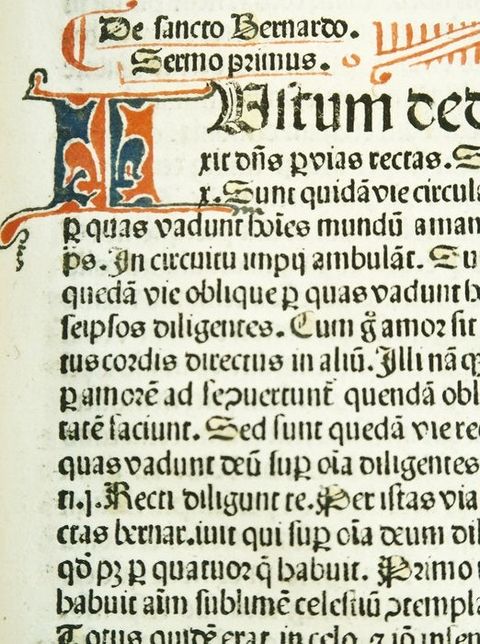 De sancto Bernardo.
Sermo primus.
IUstum ded
xit dn̄s ꝑ vias rectas. S
x. Sunt quidā vie circul
ꝑ quas vadunt hoīes mundū aman
ip̄s. In circuitu impij ambulāt. Su
quedā vie oblique ꝑ quas vadunt
seipsos diligentes. Cum g̊ amor sit
tus cordis directus in aliū. Illi nā
ꝑ amorē ad se ꝯuertunt quendā obl
tatē faciunt. Sed sunt quedā vie re
quas vadunt deū suꝑ oīa diligentes
ti.j. Recti diligunt te. Per istas via
ctas bernar. iuit qui suꝑ oīa deum dil
qd̄ pꝫ ꝑ quatuor q̄ habuit. Primo
habuit aīm sublimē celestiū ꝯtempla
Totus quidē erat in celo.